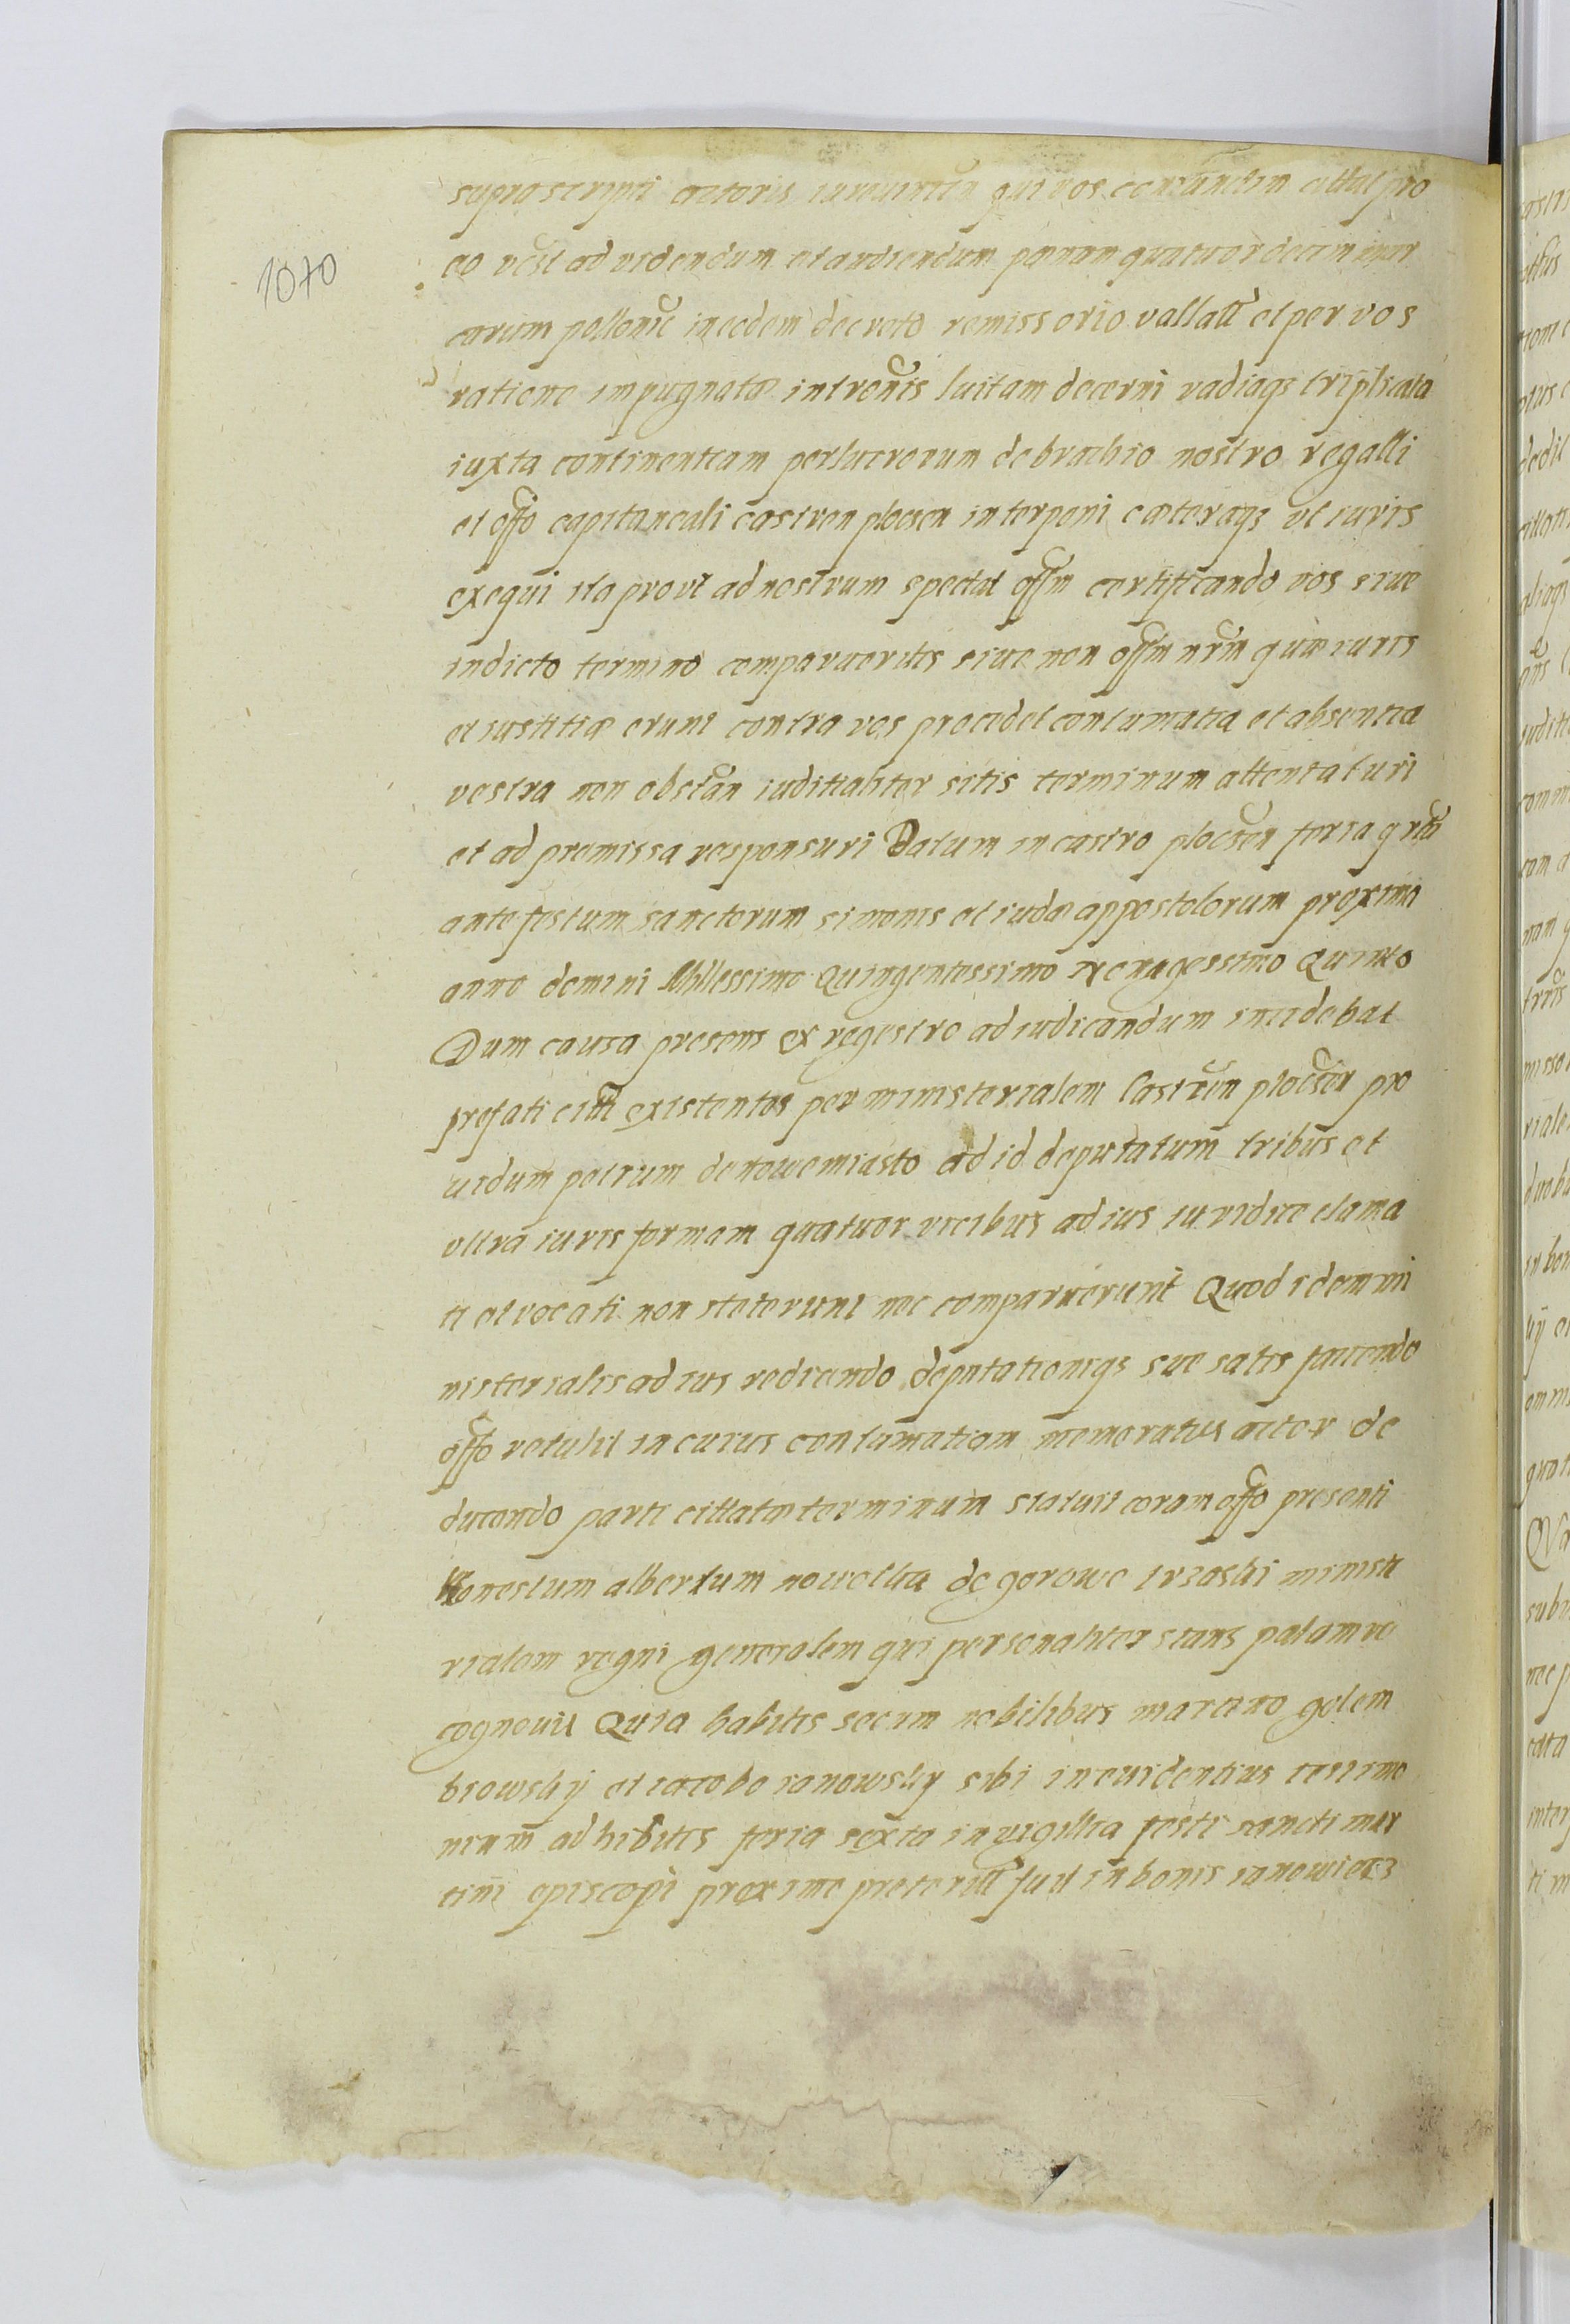 suprascripti actoris iureuincen qui vos coniunctim cittat pro
1070
eo vt sit ad videndum et audiendum pænam quatuordecim mar
carum pollonic in eodem decreto remissorio vallatt et per vos
ratione impugnatæ intromis luitam decerni vadiaqz triplicata
iuxta continentiam perlucrorum de brachio nostro regalli
et offo capitaneali castren plocen interponi cæteraqz vt iuris
exequi ita prout ad nostrum spectat offm certificando vos siue
in dicto termino comparueritis siue non offm nrm quæ iuris
et iustitiæ erunt contra vos procedet contumatia et absentia
vestra non obstan iuditialiter sitis terminum attentaturi
et ad premissa responsuri Datum in castro plocsen feria qrta
ante festum sanctorum simonis et iudæ appostolorum proximo
anno domini Millessimo Quingentessimo nonagessimo Quinto
Dum causa presens ex regestro ad iudicandum incidebat
prefati citti existentes per ministerialem Castren plocsen pro
uidum petrum de nowemiasto ad id deputatum tribus et
vltra iuris formam quatuor vicibus ad ius iuridice clama
ti et vocati non steterunt nec comparuerunt Quod idem mi
nisterialis ad ius rediendo deputationiqz sue satis faciendo
offo retulit in cuius contumatiam memoratus actor de
ducendo parti cittatæ terminum statuit coram offo presenti
Honestum albertum nowotka de gorowo trzaski ministe
rialem regni generalem qui personaliter stans palam re
cognouit Quia habitis secum nobilibus martino golem
biowsky et iacobo ianowsky sibi in euidentius testimo
nium adhibitis feria sexta in vigillia festi sancti mar
tini episcopi proxime preteritt fuit in bonis ianowietz